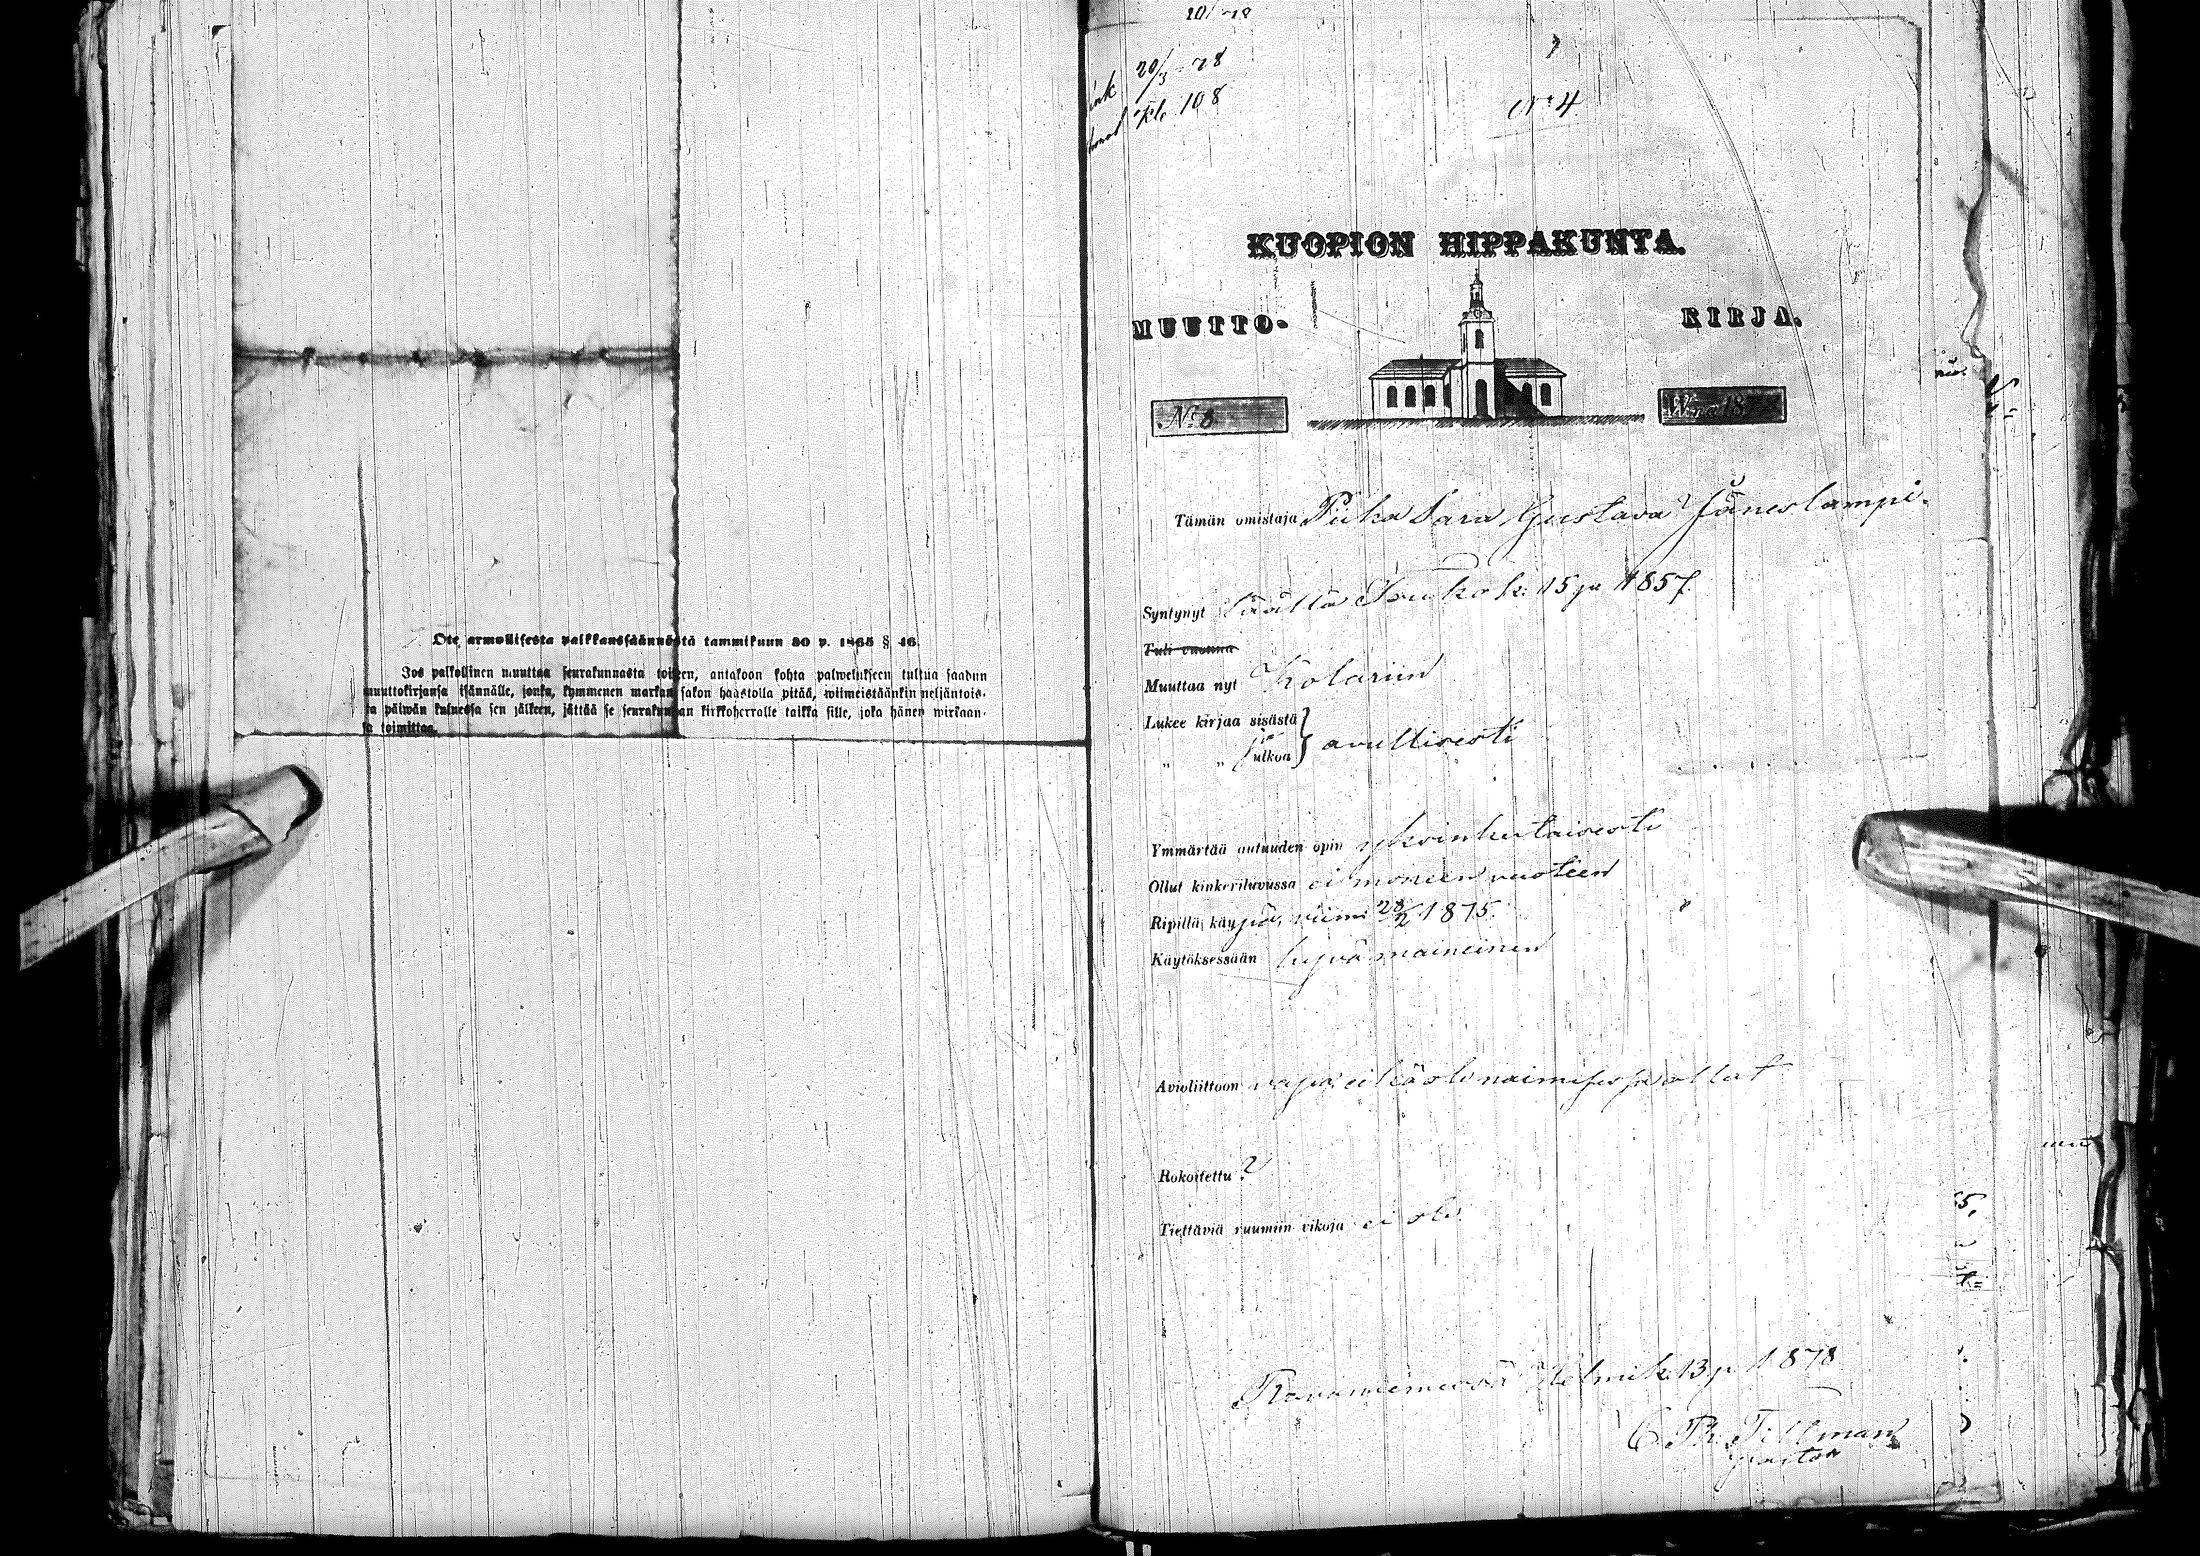 Ote armollisesta palkkaussäännöstä tammikuun 30 p. 1865 § 46.
Jos palkollinen muuttaa seurakunnasta toiseen, antakoon kohta palwelukseen tultua saadun
muuttokirjansa isännälle, jonka, kymmenen markan sakon haastolla pitää, wiimeistäänkin neljäntois-
ta päiwän kuluessa sen jälkeen, jättää se seurakunnan kirkkoherralle taikka sille, joka hänen wirkaan-
sa toimittaa.
20/3 - 78
kl. 108
No 4
KUOPION HIPPAKUNTA.
MUUTTO- KIRJA.
No 8
Tämän omistaja Piika Sara Gustava Jäneslampi.
Syntynyt täällä Toukok. 15 p 1857.
Tuli vuonna
Muuttaa nyt Kolariin
Lukee kirjaa sisästä
ja
„ „ ulkoa } avullisesti
Ymmärtää autuuden opin yksinkertaisesti
Ollut kinkeriluvussa ei moneen vuoteen
Ripillä käypä, viimi 28/2 1875
Käytöksessään hyvä maineinen
Avioliittoon vapa, eikä ole naimisessa ollut
Rokoitettu ?
Tiettäviä ruumiin vikoja ei ole
Rovaniemessä Helmik. 13 p 1878
C. Th. Tillman
pastor